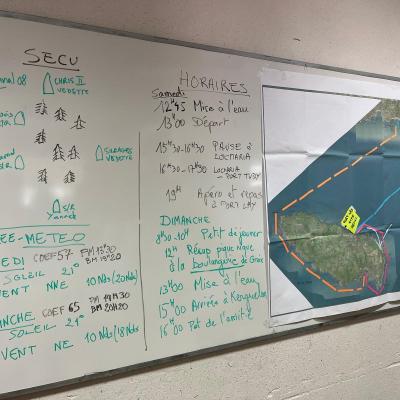 SECU
CHRIS II
VEDETTE
VEDETTE
S/R
Yannick
EE-METEO
EDI COEF 57 PM 13h30
BM 19h20
SOLEIL 21°
VENT NNE 10 Nds (20 Nds)
ANCHE COEF 65 PM 14H30
BM 20H20
SOLEIL 21°
VENT NE 10 Nds (18 Nds
HORAIRES
Samedi
12H45 Mise à l'eau
13H00 Départ
15H30-16H30 PAUSE à
LOCMARIA
16H30-17H30 LOCMARIA
PORT TUDY
19H Apéro et repas
à PORT LAY
DIMANCHE
9h30-10H Petit déjeuner
12H Récup pique nique
à la boulangerie de Groix
13H00 Mise à l'eau
15H00 Arrivée à Kerguelen
16H00 Pot de l'amitié